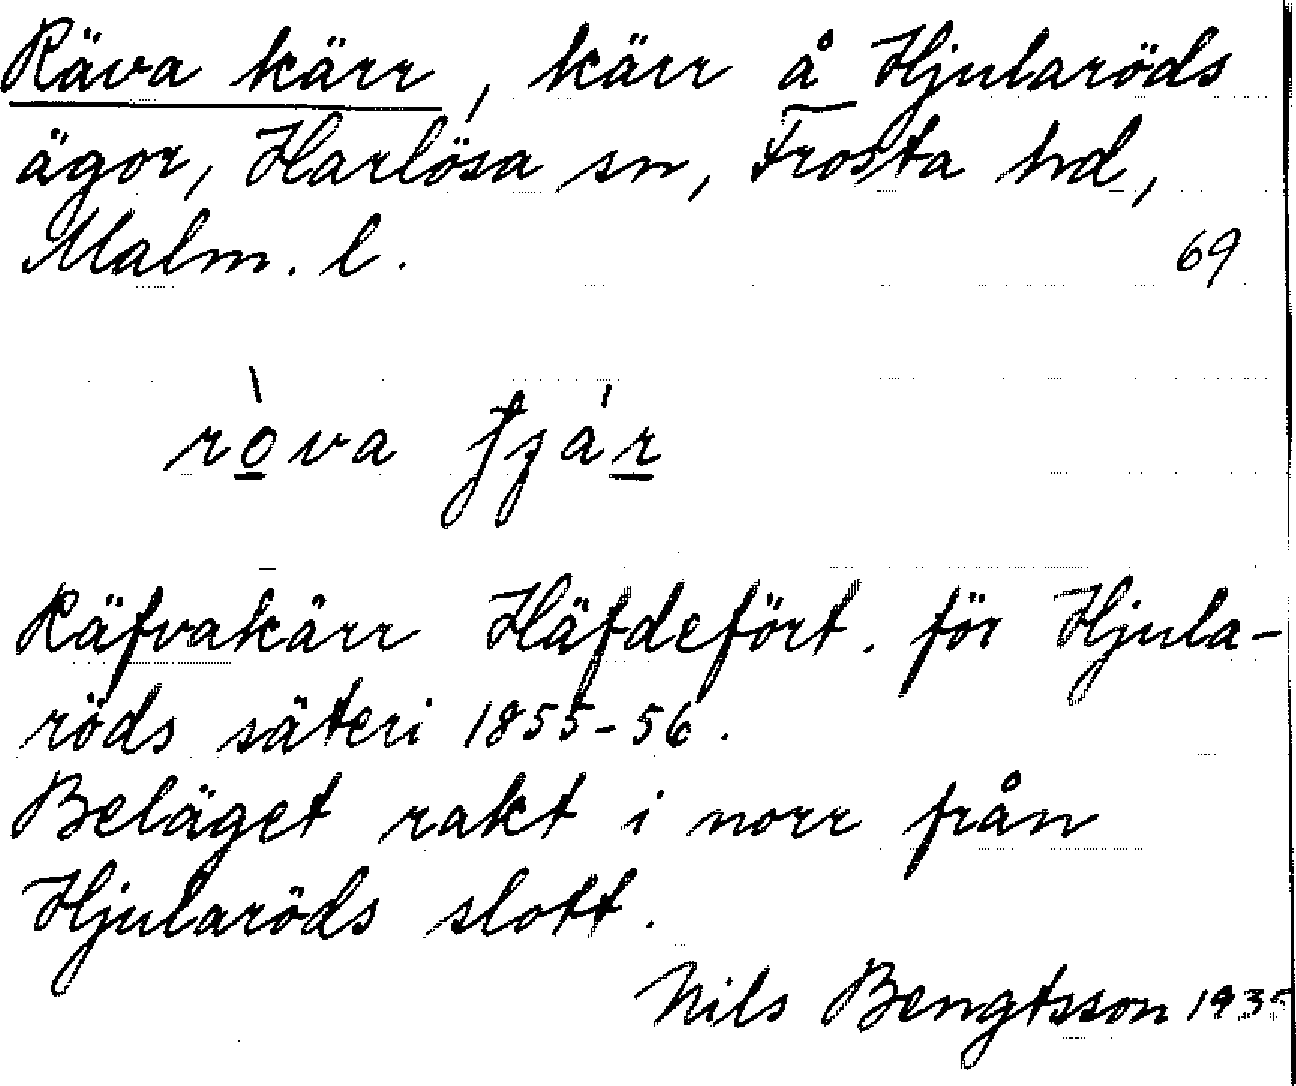 Räva kärr, kärr å Hjularöds
ägor, Harlösa sn, Frosta hd,
Malm. l. 69
ròva
Räfvakärr Häfdefört. för Hjula-
röds säteri 1855-56.
Beläget rakt i norr från
Hjularöds slott.
Nils Bengtsson 1935